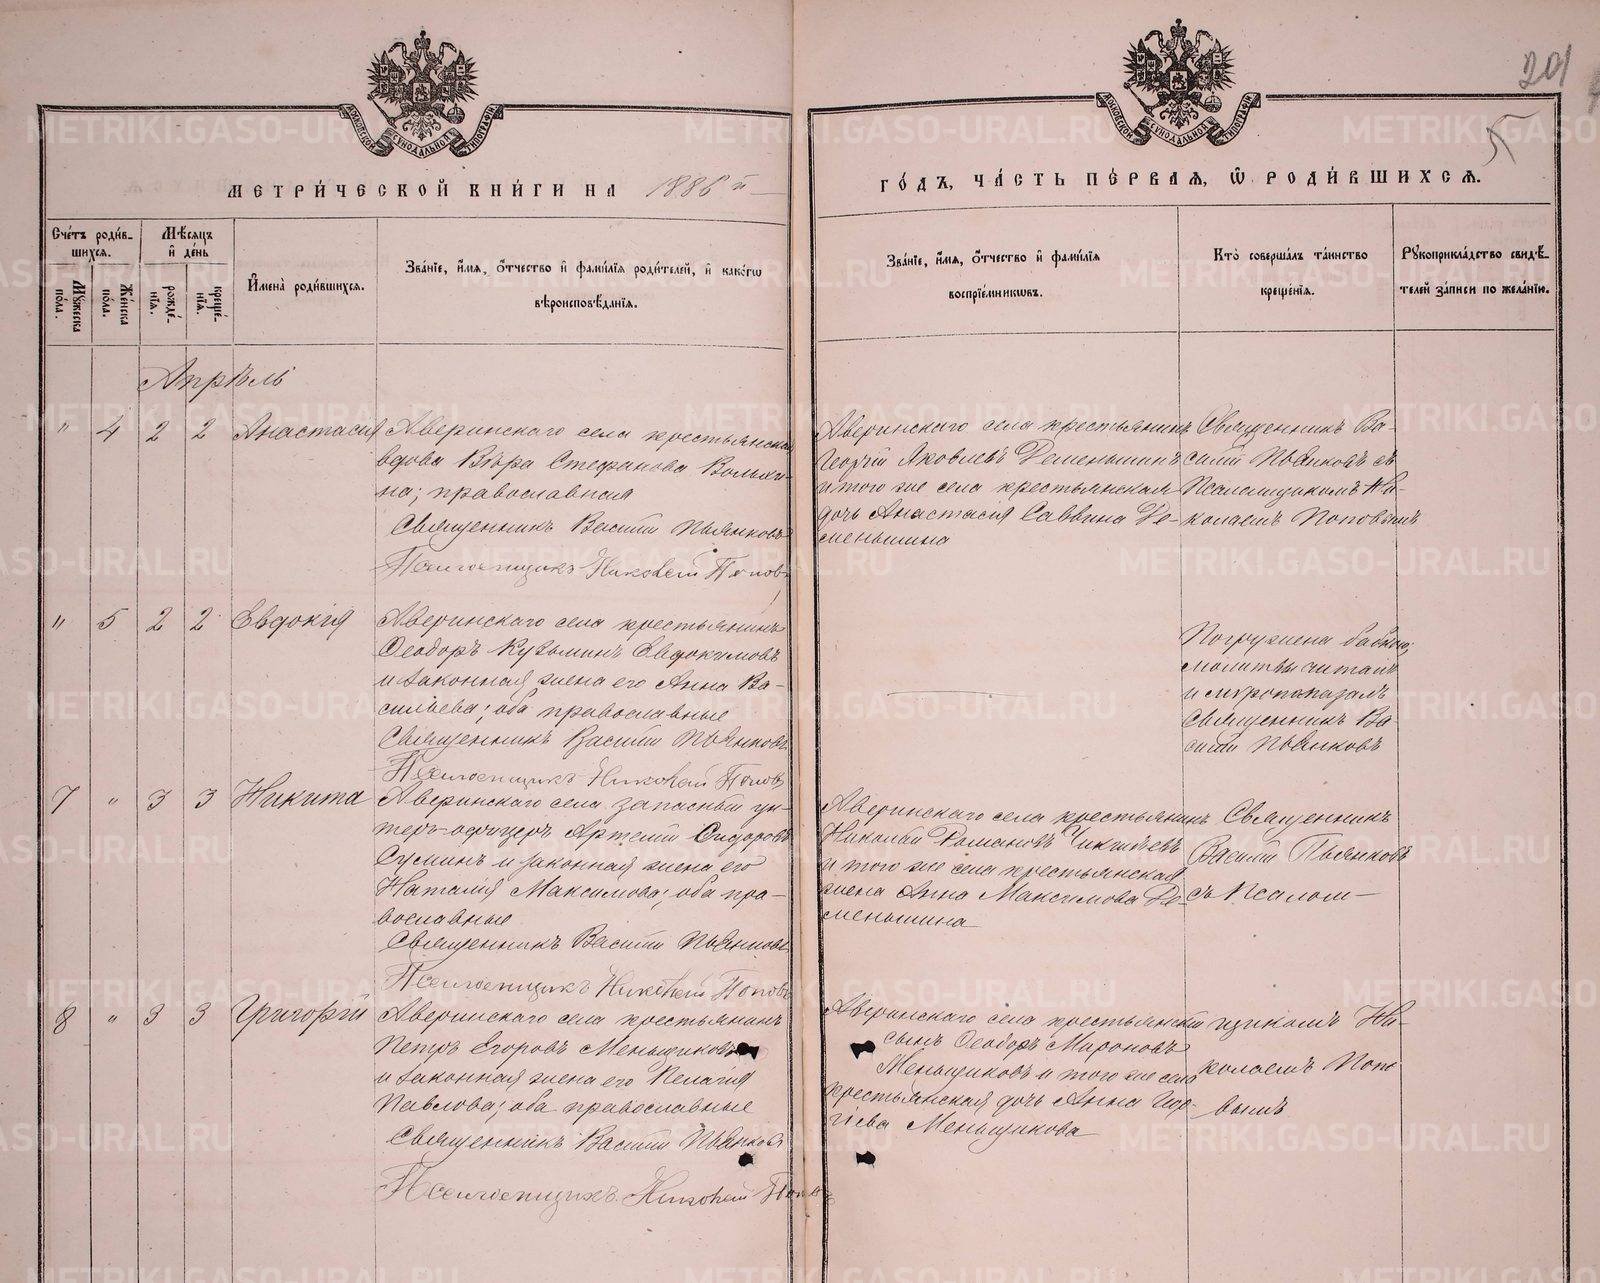 201
5
МОСКОВСКОЙ СѴНОДАЛЬНОЙ ТИПОГРАФІИ
МОСКОВСКОЙ СѴНОДАЛЬНОЙ ТИПОГРАФІИ
МЕТРИ́ЧЕСКОЙ КНИ́ГИ НА 1886 й
ГО́ДЪ, ЧА́СТЬ ПЕ́РВАЯ, Ѽ РОДИ́ВШИХСѦ.
Сче́тъ роди́в-
шихсѧ.
Мꙋ́жеска по́ла.
Же́нска по́ла.
Мѣ́сѧцъ
и҆ де́нь
рожде́-
нїѧ.
креще́-
нїѧ.
И҆мена̀ роди́вшихсѧ.
Зва́нїе, и҆́мѧ, ѻ҆́тчество и҆ фами́лїѧ роди́телей, и҆ како́гѡ
вѣроисповѣ́данїѧ.
Зва́нїе, и҆́мѧ, ѻ҆́тчество и҆ фами́лїѧ
воспрїе́мникѡвъ.
Кто̀ соверша́лъ та́инство
креще́нїѧ.
Рꙋкоприкла́дство свидѣ́-
телей за́писи по жела́нїю.
Апрѣль
" 4 2 2 Анастасія
Аверинскаго села крестьянская
вдова Вѣра Стефанова Волки-
на; православная
Священникъ Василій Пьянковъ
Псаломщикъ Николай Поповъ
Аверинскаго села крестьянинъ
Георгій Яковлевъ Деменьшинъ
и того же села крестьянская
дочь Анастасія Саввина Де-
меньшина
Священникъ Ва-
силій Пьянковъ съ
Псаломщикомъ Ни-
колаемъ Поповымъ
" 5 2 2 Евдокія
Аверинскаго села крестьянинъ
Ѳеодоръ Кузьминъ Евдокимовъ
и законная жена его Анна Ва-
сильева; оба православные
Священникъ Василій Пьянковъ
Псаломщикъ Николай Поповъ
Погружена бабкою;
молитвы читалъ
и мѵропомазалъ
Священникъ Ва-
силій Пьянковъ
7 " 3 3 Никита
Аверинскаго села запасный ун-
теръ-офицеръ Артемій Сидоровъ
Суминъ и законная жена его
Наталія Максимова; оба пра-
вославные
Священникъ Василій Пьянковъ
Псаломщикъ Николай Поповъ
Аверинскаго села крестьянинъ
Николай Романовъ
и того же села крестьянская
жена Анна Максимова Де-
меньшина
Священникъ
Василій Пьянковъ
съ Псалом-
8 " 3 3 Григорій
Аверинскаго села крестьянинъ
Петръ Егоровъ Меньщиковъ
и законная жена его Пелагія
Павлова; оба православные
Священникъ Василій Пьянковъ
Псаломщикъ Николай Поповъ
Аверинскаго села крестьянскій
сынъ Ѳеодоръ Мироновъ
Меньщиковъ и того же села
крестьянская дочь Анна Геор-
гіева Меньщикова
щикомъ Ни-
колаемъ Попо-
вымъ
METRIKI.GASO-URAL.RU